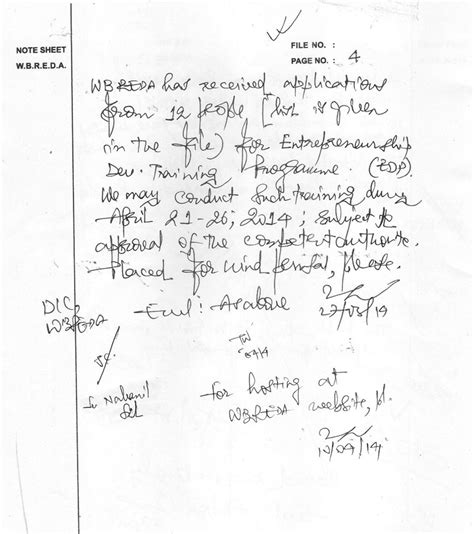 NOTE SHEET
W.B.R.E.D.A.
FILE NO. :
PAGE NO. : 4
WBREDA has received applications
from 12 people (list is given
in the file) for Entrepreneurship
Dev. Training Programme (EDP).
We may conduct such training during
April 21-26, 2014; subject to
approval of the competent
Placed for kind perusal, please.
Encl: As above
27/03/14
DIC,
WBREDA
for hosting at
WBREDA website, pl.
10/04/14